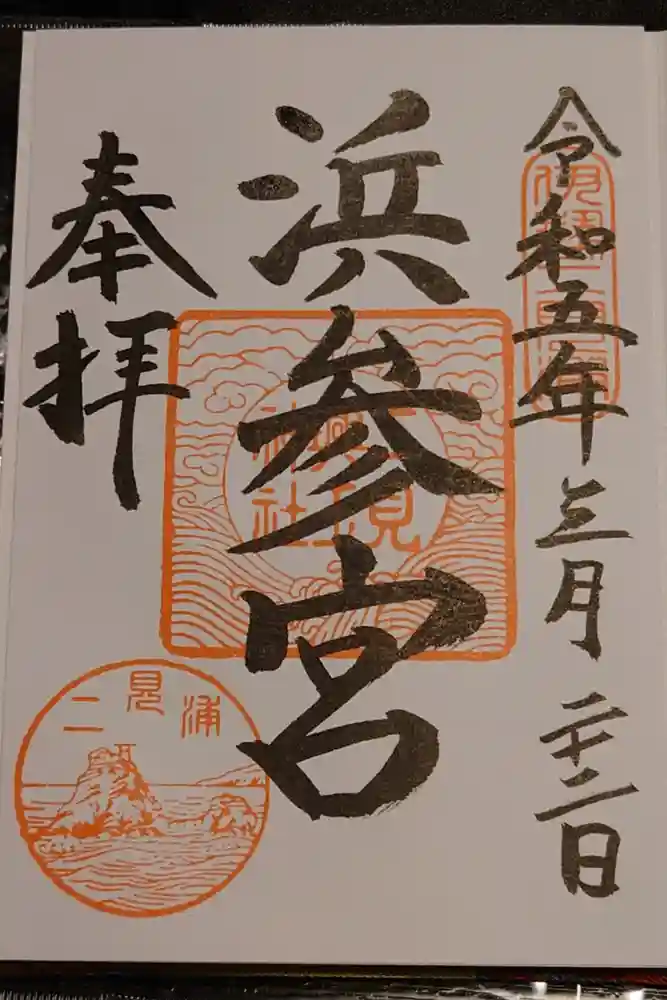 令和五年三月二十二日
伊勢二見浦
浜参宮
二見
興玉
神社
奉拝
二見浦